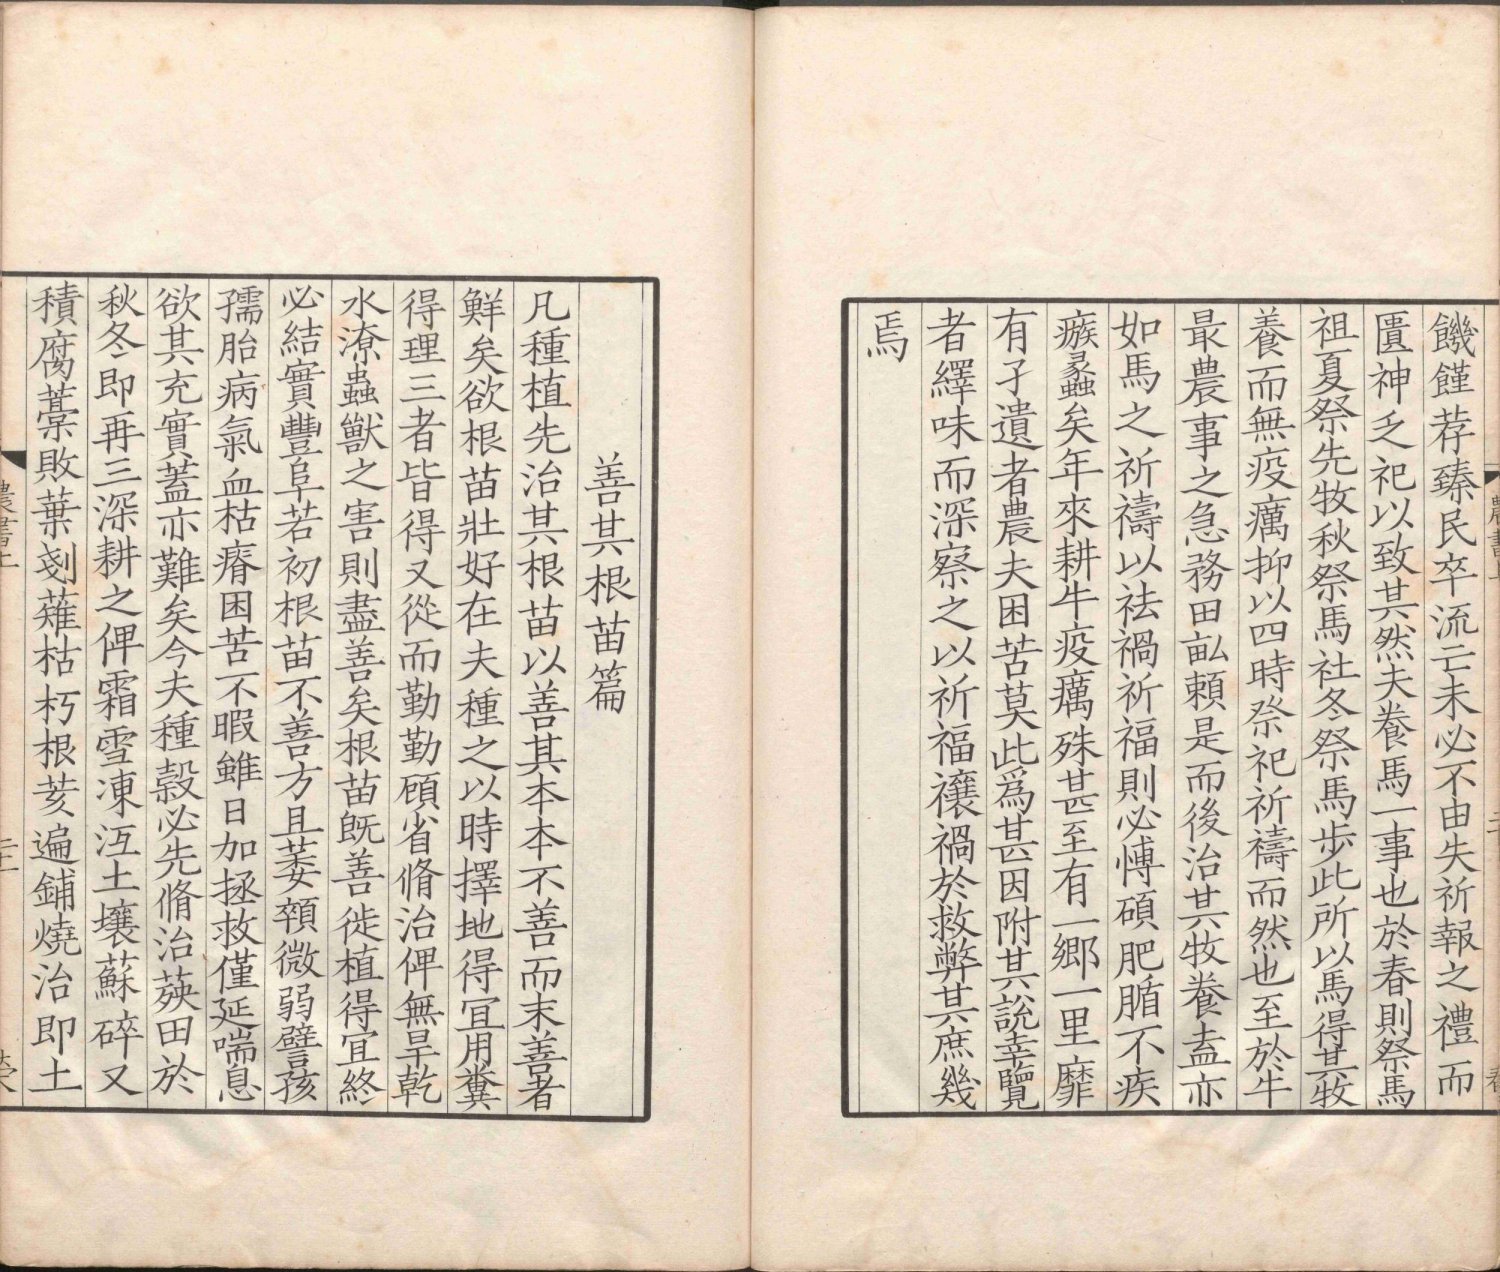 饑饉荐臻民卒流亡未必不由失祈報之禮而
匱神乏祀以致其然夫養馬一事也於春則祭馬
祖夏祭先牧秋祭馬社冬祭馬步此所以馬得其牧
養而無疫癘抑以四時祭祀祈禱而然也至於牛
最農事之急務田畝賴是而後治其牧養盍亦
如馬之祈禱以祛禍祈福則必愽碩肥腯不疾
瘯蠡矣年來耕牛疫癘殊甚至有一鄉一里靡
有孑遺者農夫困苦莫此爲甚因附其說幸覽
者繹味而深察之以祈福禳禍於救弊其庶幾
焉
善其根苗篇
凡種植先治其根苗以善其本本不善而末善者
鮮矣欲根苗壯好在夫種之以時擇地得宜用糞
得理三者皆得又從而勤勤顧省脩治俾無旱乾
水潦蟲獸之害則盡善矣根苗旣善徙植得宜終
必結實豐阜若初根苗不善方且萎顇微弱譬孩
孺胎病氣血枯瘠困苦不暇雖日加拯救僅延喘息
欲其充實蓋亦難矣今夫種穀必先脩治秧田於
秋冬即再三深耕之俾霜雪凍沍土壤蘇碎又
積腐藁敗葉剗薙枯朽根荄遍鋪燒治即土
農書上